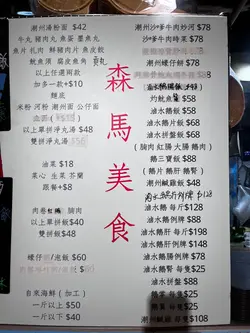 潮州湯粉面 $42
牛丸 豬肉丸 魚蛋 墨魚丸
魚片 扎肉 鮮豬肉片 魚皮餃
魷魚須 腐皮魚角
以上任選兩款
加多一款+$10
麵底
米粉 河粉 潮州面 公仔面
以上單拼淨丸湯 $48
雙拼淨丸湯
油菜 $18
菜心 生菜 芥蘭
跟餐+$8
肉卷
以上單拼飯$40
雙拼飯$48
蠔仔 /泡飯 $60
自來海鮮 (加工)
一斤以上 $50
一斤以下 $40
森馬美食
潮州沙爹牛肉炒河 $78
沙爹牛肉時菜 $78
潮州蠔仔餅 $78
灼魷魚 $58
滷水鵝片飯 $68
滷水拼盤飯 $68
(腩肉 紅腸 大腸 鵝肉)
鵝三寶飯 $88
(鵝片 鵝肝 鵝腎)
潮州鹹雞飯 $58
$128
滷水鵝 每斤 $128
滷水鵝例牌 $88
滷水鵝肝 每斤 $148
滷水鵝肝例牌 $88
滷水鵝片例牌 $78
滷水鵝腎 每隻$25
$58
鵝掌 每隻$25
鵝頭 每隻$25
潮州鹹雞 $108